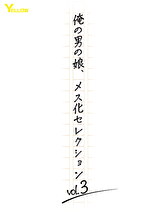 YELLOW
俺の男の娘、メス化セレクション
vol.3